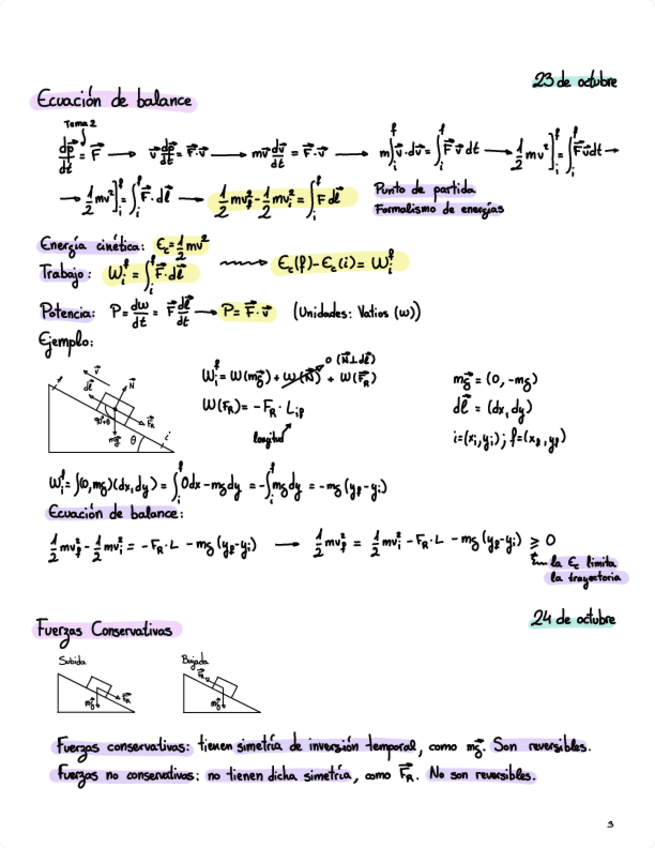 23 de octubre
Ecuación de balance
Tema 2
dp⃗/dt = F⃗ → v⃗ dp⃗/dt = F⃗·v⃗ → mv⃗ dv⃗/dt = F⃗·v⃗ → m∫ᵢᶠ v⃗·dv⃗ = ∫ᵢᶠ F⃗ v⃗ dt → 1/2 mv²]ᵢᶠ = ∫ᵢᶠ F⃗v⃗dt →
→ 1/2 mv²]ᵢᶠ = ∫ᵢᶠ F⃗·dl⃗ → 1/2 mv_f² - 1/2 mv_i² = ∫ᵢᶠ F dl⃗ Punto de partida
Formalismo de energías
Energía cinética: Ec = 1/2 mv²
Trabajo: Wᵢᶠ = ∫ᵢᶠ F⃗·dl⃗ ⟿ Ec(f) - Ec(i) = Wᵢᶠ
Potencia: P = dw/dt = F⃗ dl⃗/dt → P = F⃗·v⃗ (Unidades: Vatios (w))
Ejemplo:
f v⃗ dl⃗ N⃗ F⃗R 90+θ mg⃗ θ i
Wᵢᶠ = W(mg⃗) + W(N⃗) + W(F⃗R) 0 (N⃗⊥dl⃗)
W(FR) = -FR · Lif
longitud
mg⃗ = (0, -mg)
dl⃗ = (dx, dy)
i = (xi, yi); f = (xf, yf)
Wᵢᶠ = ∫(0, mg)(dx, dy) = ∫ᵢᶠ 0dx - mgdy = -∫ᵢᶠ mgdy = -mg(yf - yi)
Ecuación de balance:
1/2 mv_f² - 1/2 mv_i² = -FR·L - mg(yf - yi) → 1/2 mv_f² = 1/2 mv_i² - FR·L - mg(yf - yi) ≥ 0
la Ec limita
la trayectoria
24 de octubre
Fuerzas Conservativas
Subida Bajada
mg⃗ F⃗R F⃗R mg⃗
Fuerzas conservativas: tienen simetría de inversión temporal, como mg⃗. Son reversibles.
Fuerzas no conservativas: no tienen dicha simetría, como F⃗R. No son reversibles.
3